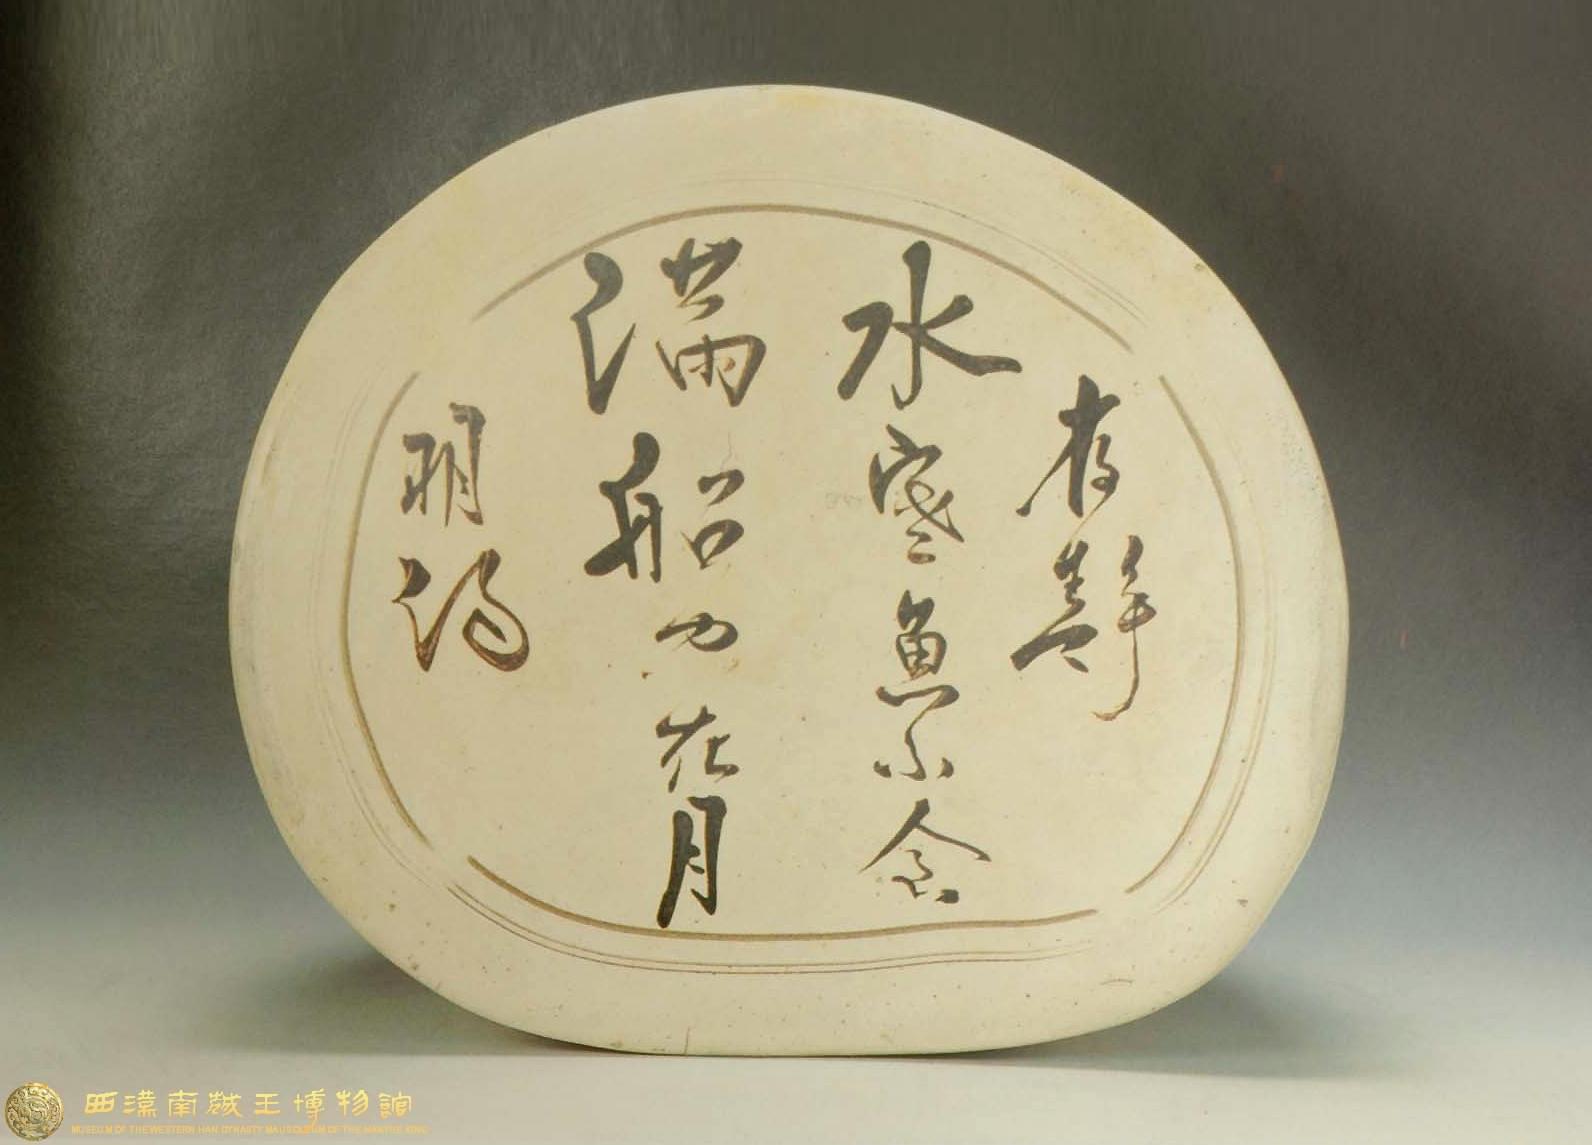 夜靜
水寒魚不食
滿船空在月
明歸
西漢南越王博物館
MUSEUM OF THE WESTERN HAN DYNASTY MAUSOLEUM OF THE NANYUE KING